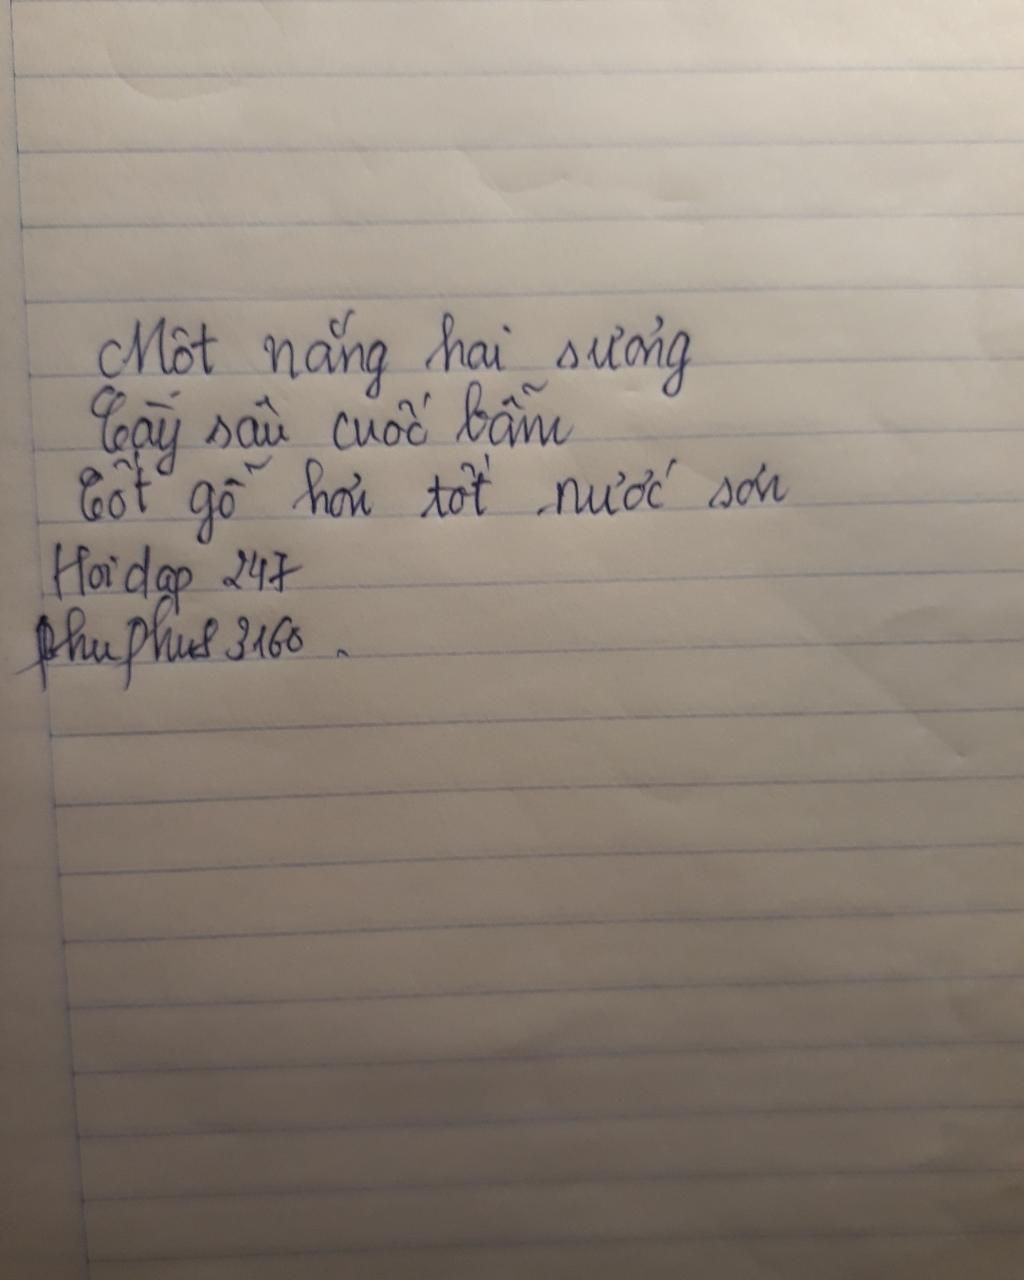 Một nắng hai sương
Cày sâu cuốc bẫm
Tốt gỗ hơn tốt nước sơn
Hoidap 247
phuphus3160.